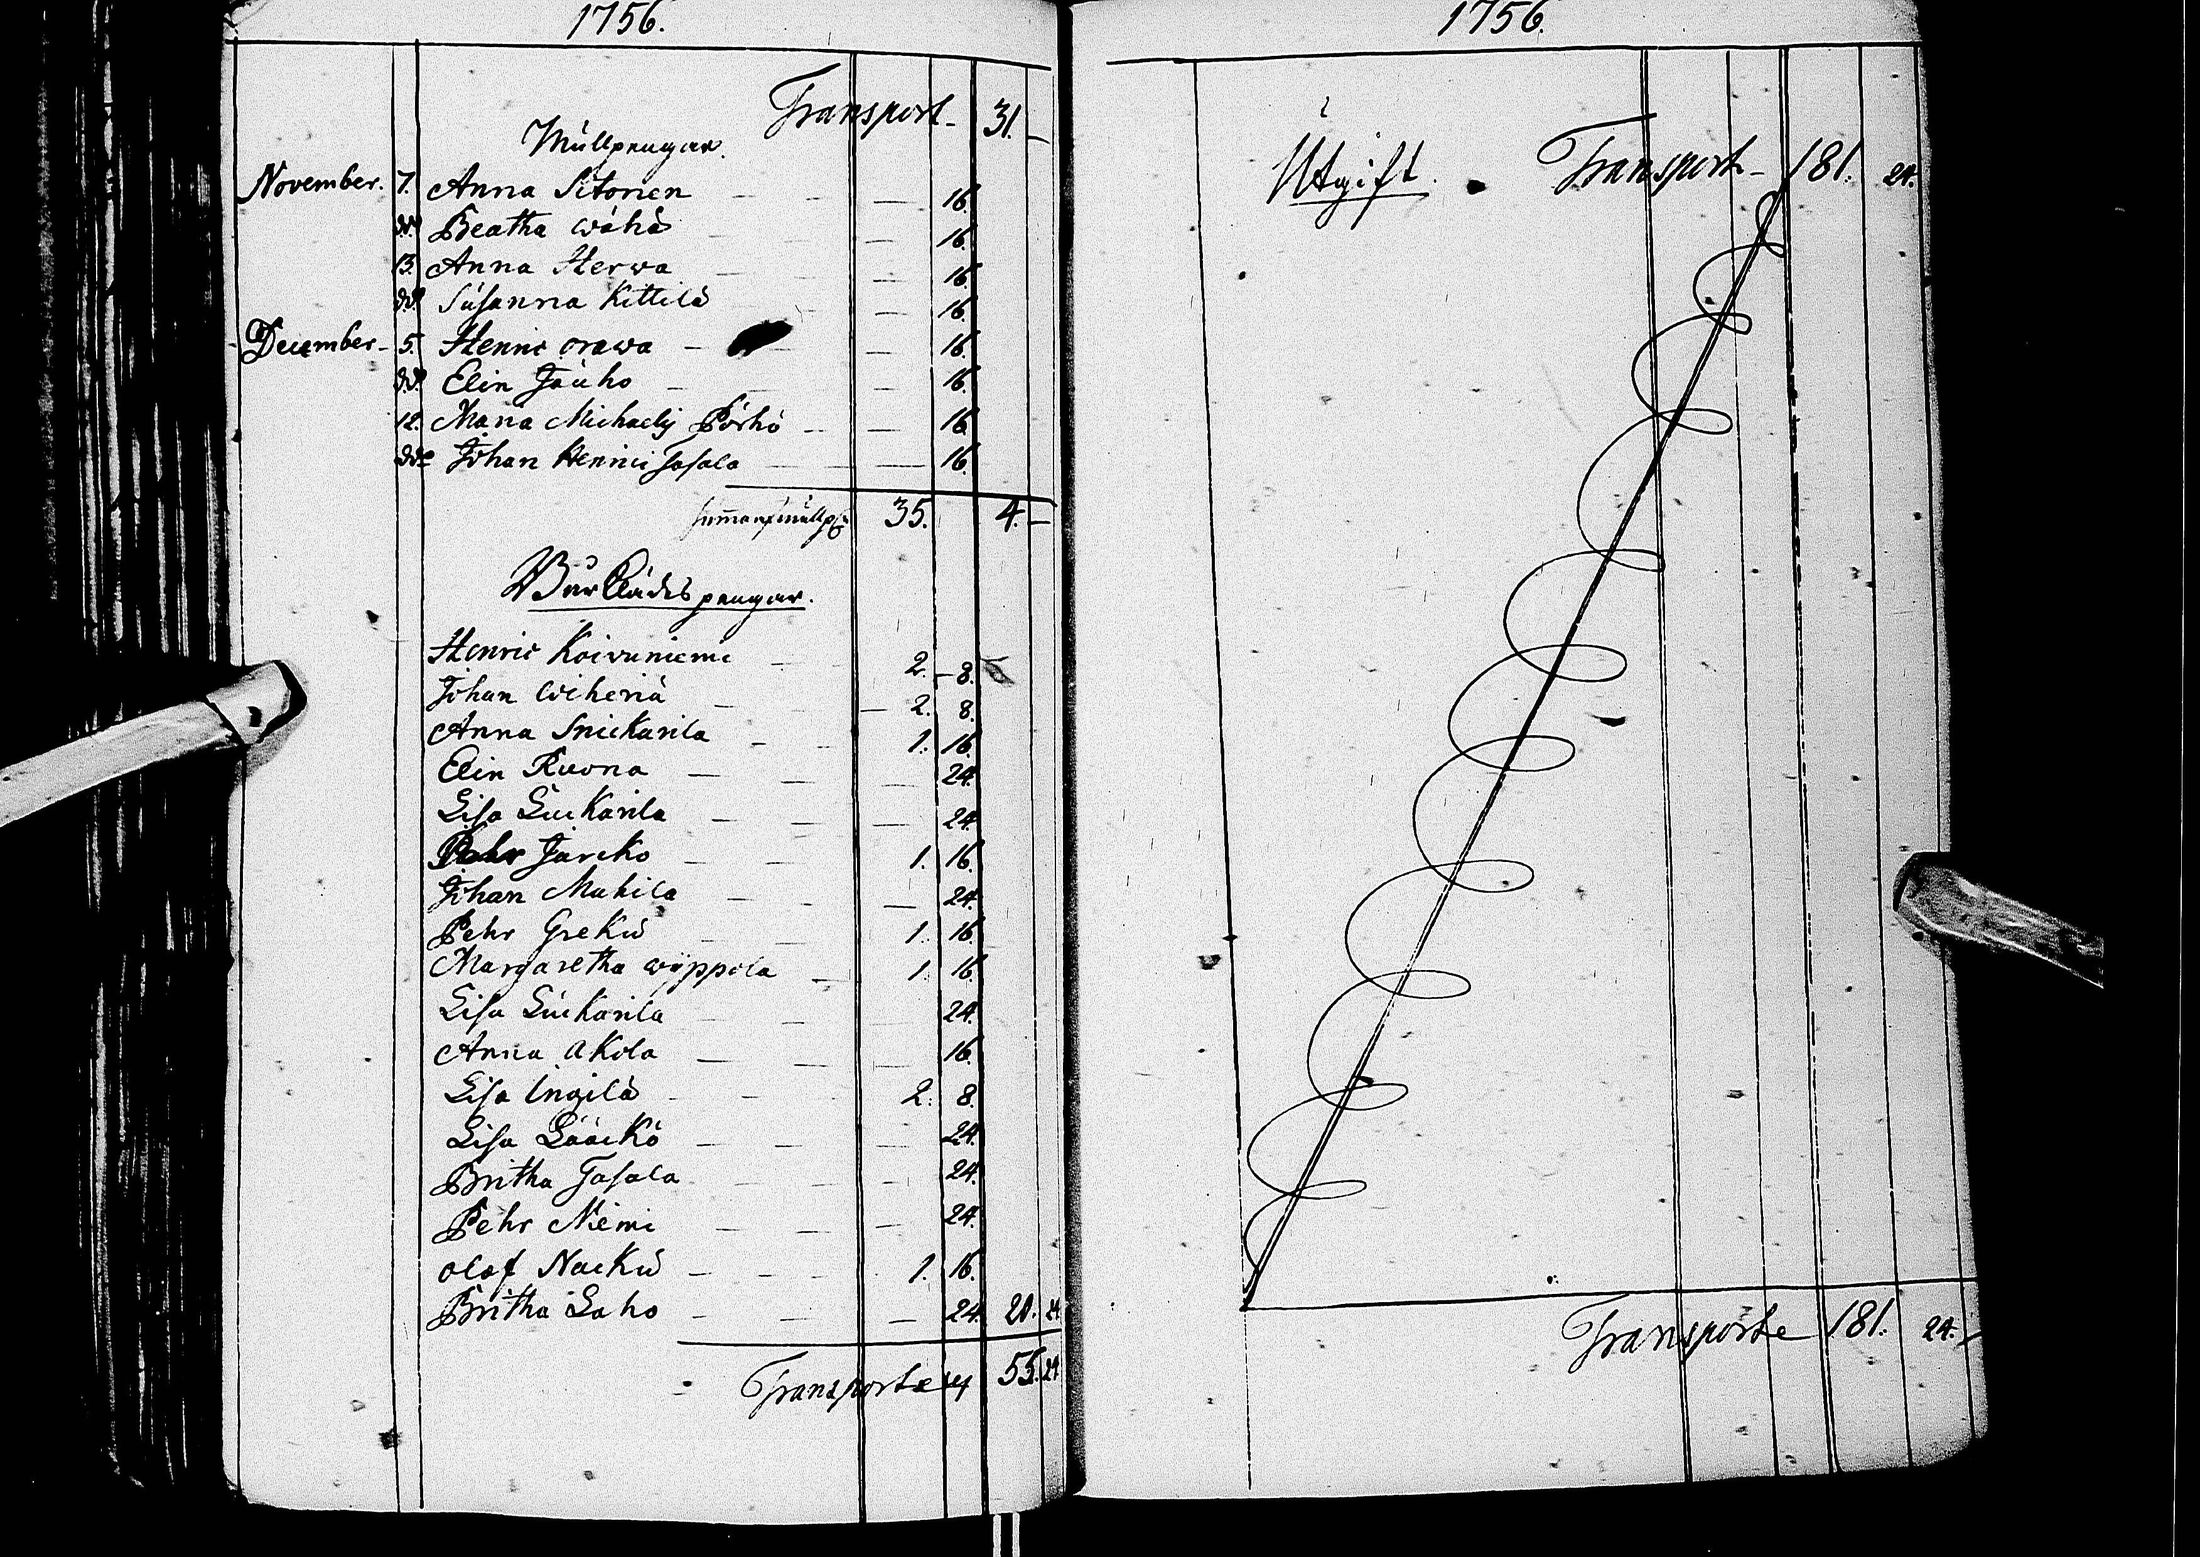 1756.
Transport - 31. -
Mullpengar.
November. 7. Anna Sitonen - - - 16.
do Beatha wähä - - - 16.
13. Anna Herwa - - - 16.
do Susanna Kittilä - - - 16.
December - 5. Henric orawa - - - 16.
do Elin Jauho - - - 16.
12. Maria Michaelis Pörhö - - - 16.
do Johan Henrici Tasala - - - 16.
35. 4. -
pengar.
Henric Koivuniemi - 2. - 8.
Johan wiheriä - - 2. 8.
Anna Snickarila - - 1. 16.
Elin Ruona - - - 24.
Lisa Luckarila - - - 24.
Pehr Jareko - - 1. 16.
Johan Makila - - - 24.
Pehr Greku - - 1. 16.
Margaretha wyppola - 1. 16.
Lisa Luckarila - - - 24.
Anna Akola - - - 16.
Lisa Ingilä - - 2. 8.
Lisa Lääckö - - - 24.
Britha Tasala - - - 24.
Pehr Niemi - - - 24.
Olof Nacku - - - 1. 16.
Britha Laho - - - 24. 20. 24
Transporteras 55. 24
1756.
Utgift. Transport - 181. 24.
Transporte 181. 24. -